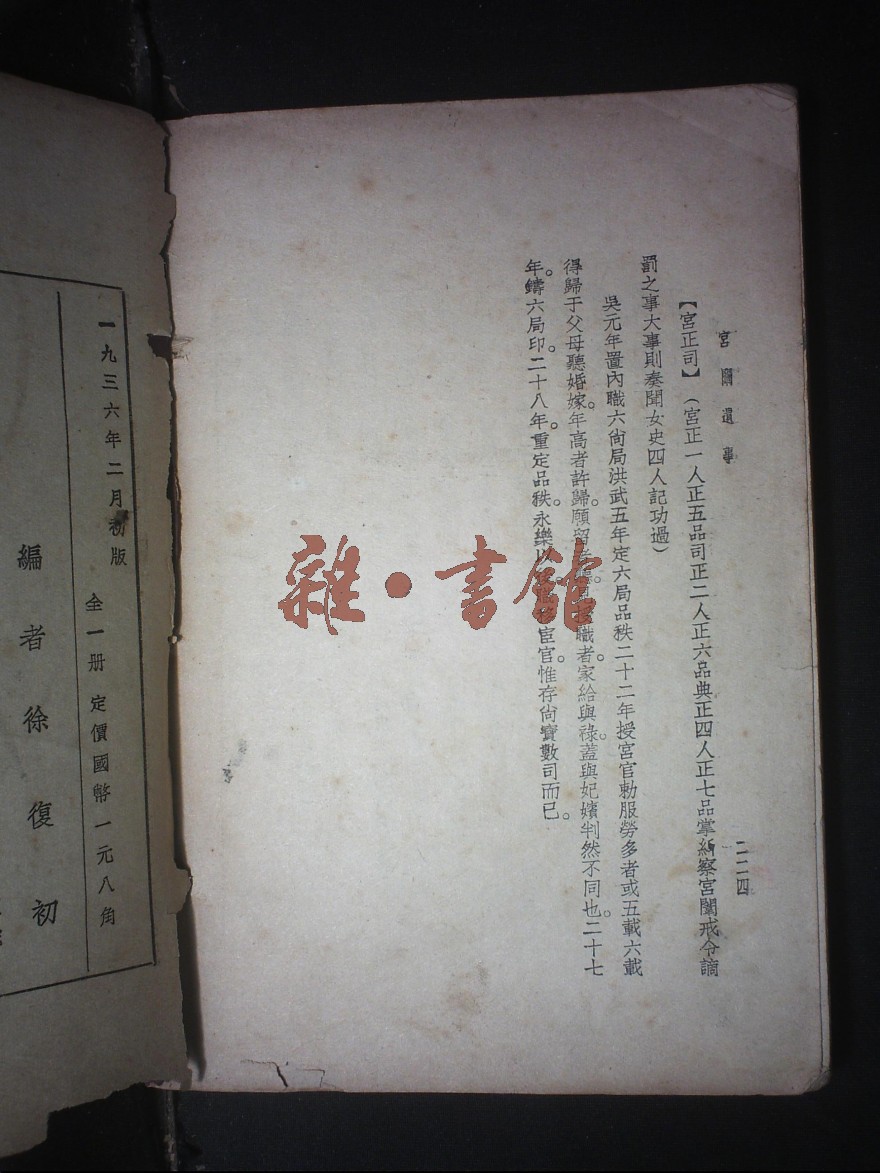 宮闈遺事
二二四
【宮正司】（宮正一人正五品司正二人正六品典正四人正七品掌糾察宮闈戒令謫
罰之事大事則奏聞女史四人記功過）
吳元年置內職六尙局洪武五年定六局品秩二十二年授宮官勅服勞多者或五載六載
得歸于父母聽婚嫁。年高者許歸。願留者聽。職者家給與祿。蓋與妃嬪判然不同也。二十七
年。鑄六局印。二十八年。重定品秩。永樂以宦官。惟存尙寶數司而已。
雜·書館
一九三六年二月初版
全一册 定價國幣一元八角
編者徐復初